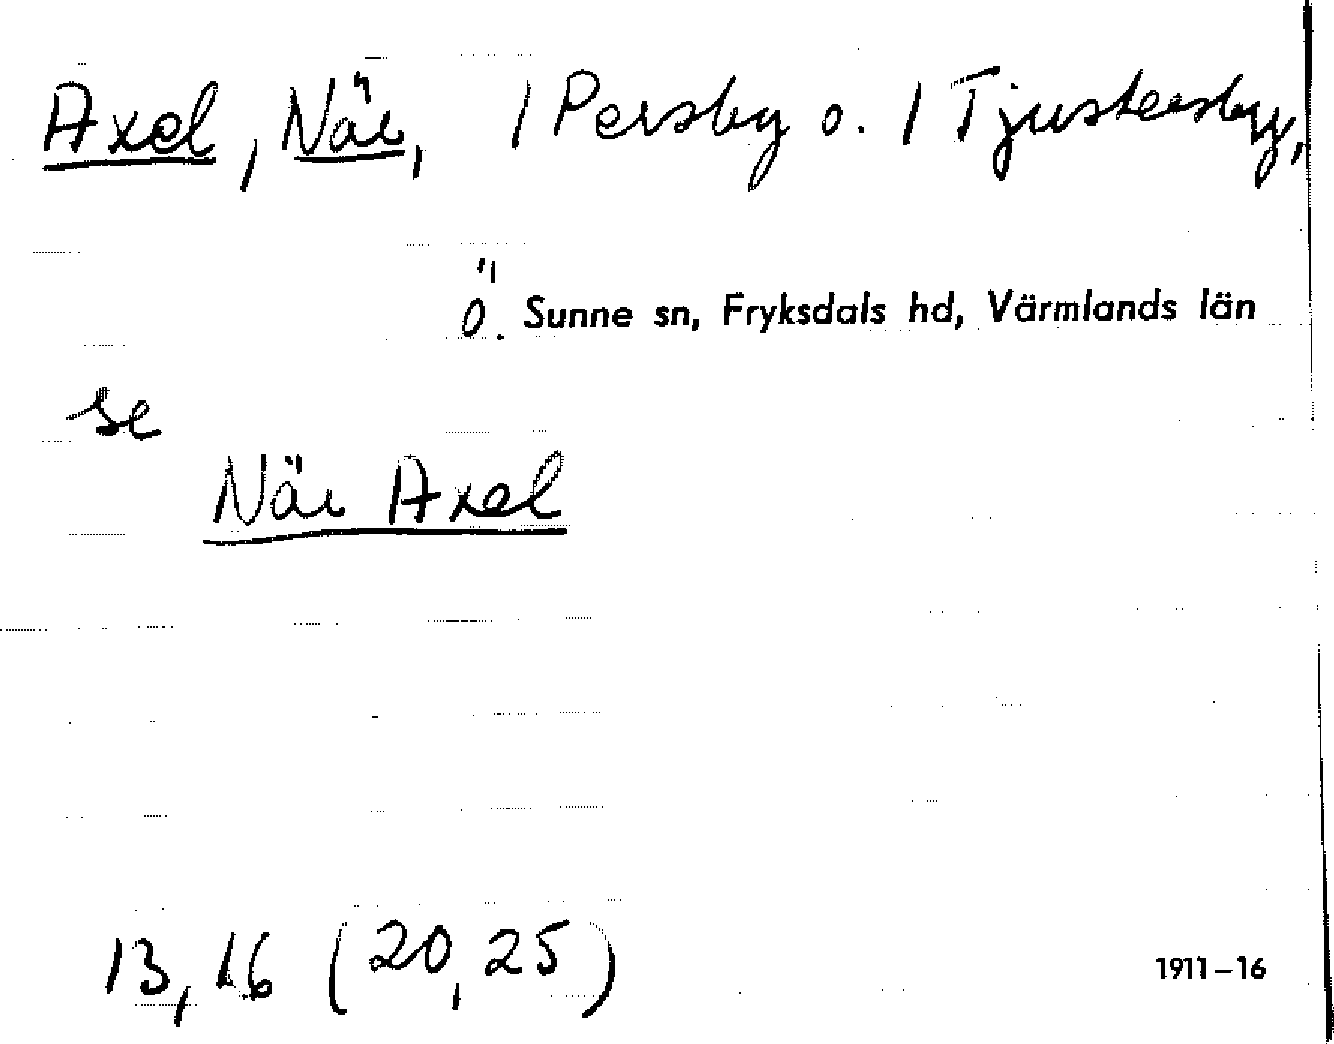 Axel, När, / Persby o. / Tjustersby,
Ö. Sunne sn, Fryksdals hd, Värmlands län
se
När Axel
13, 16 (20, 25)
1911–16